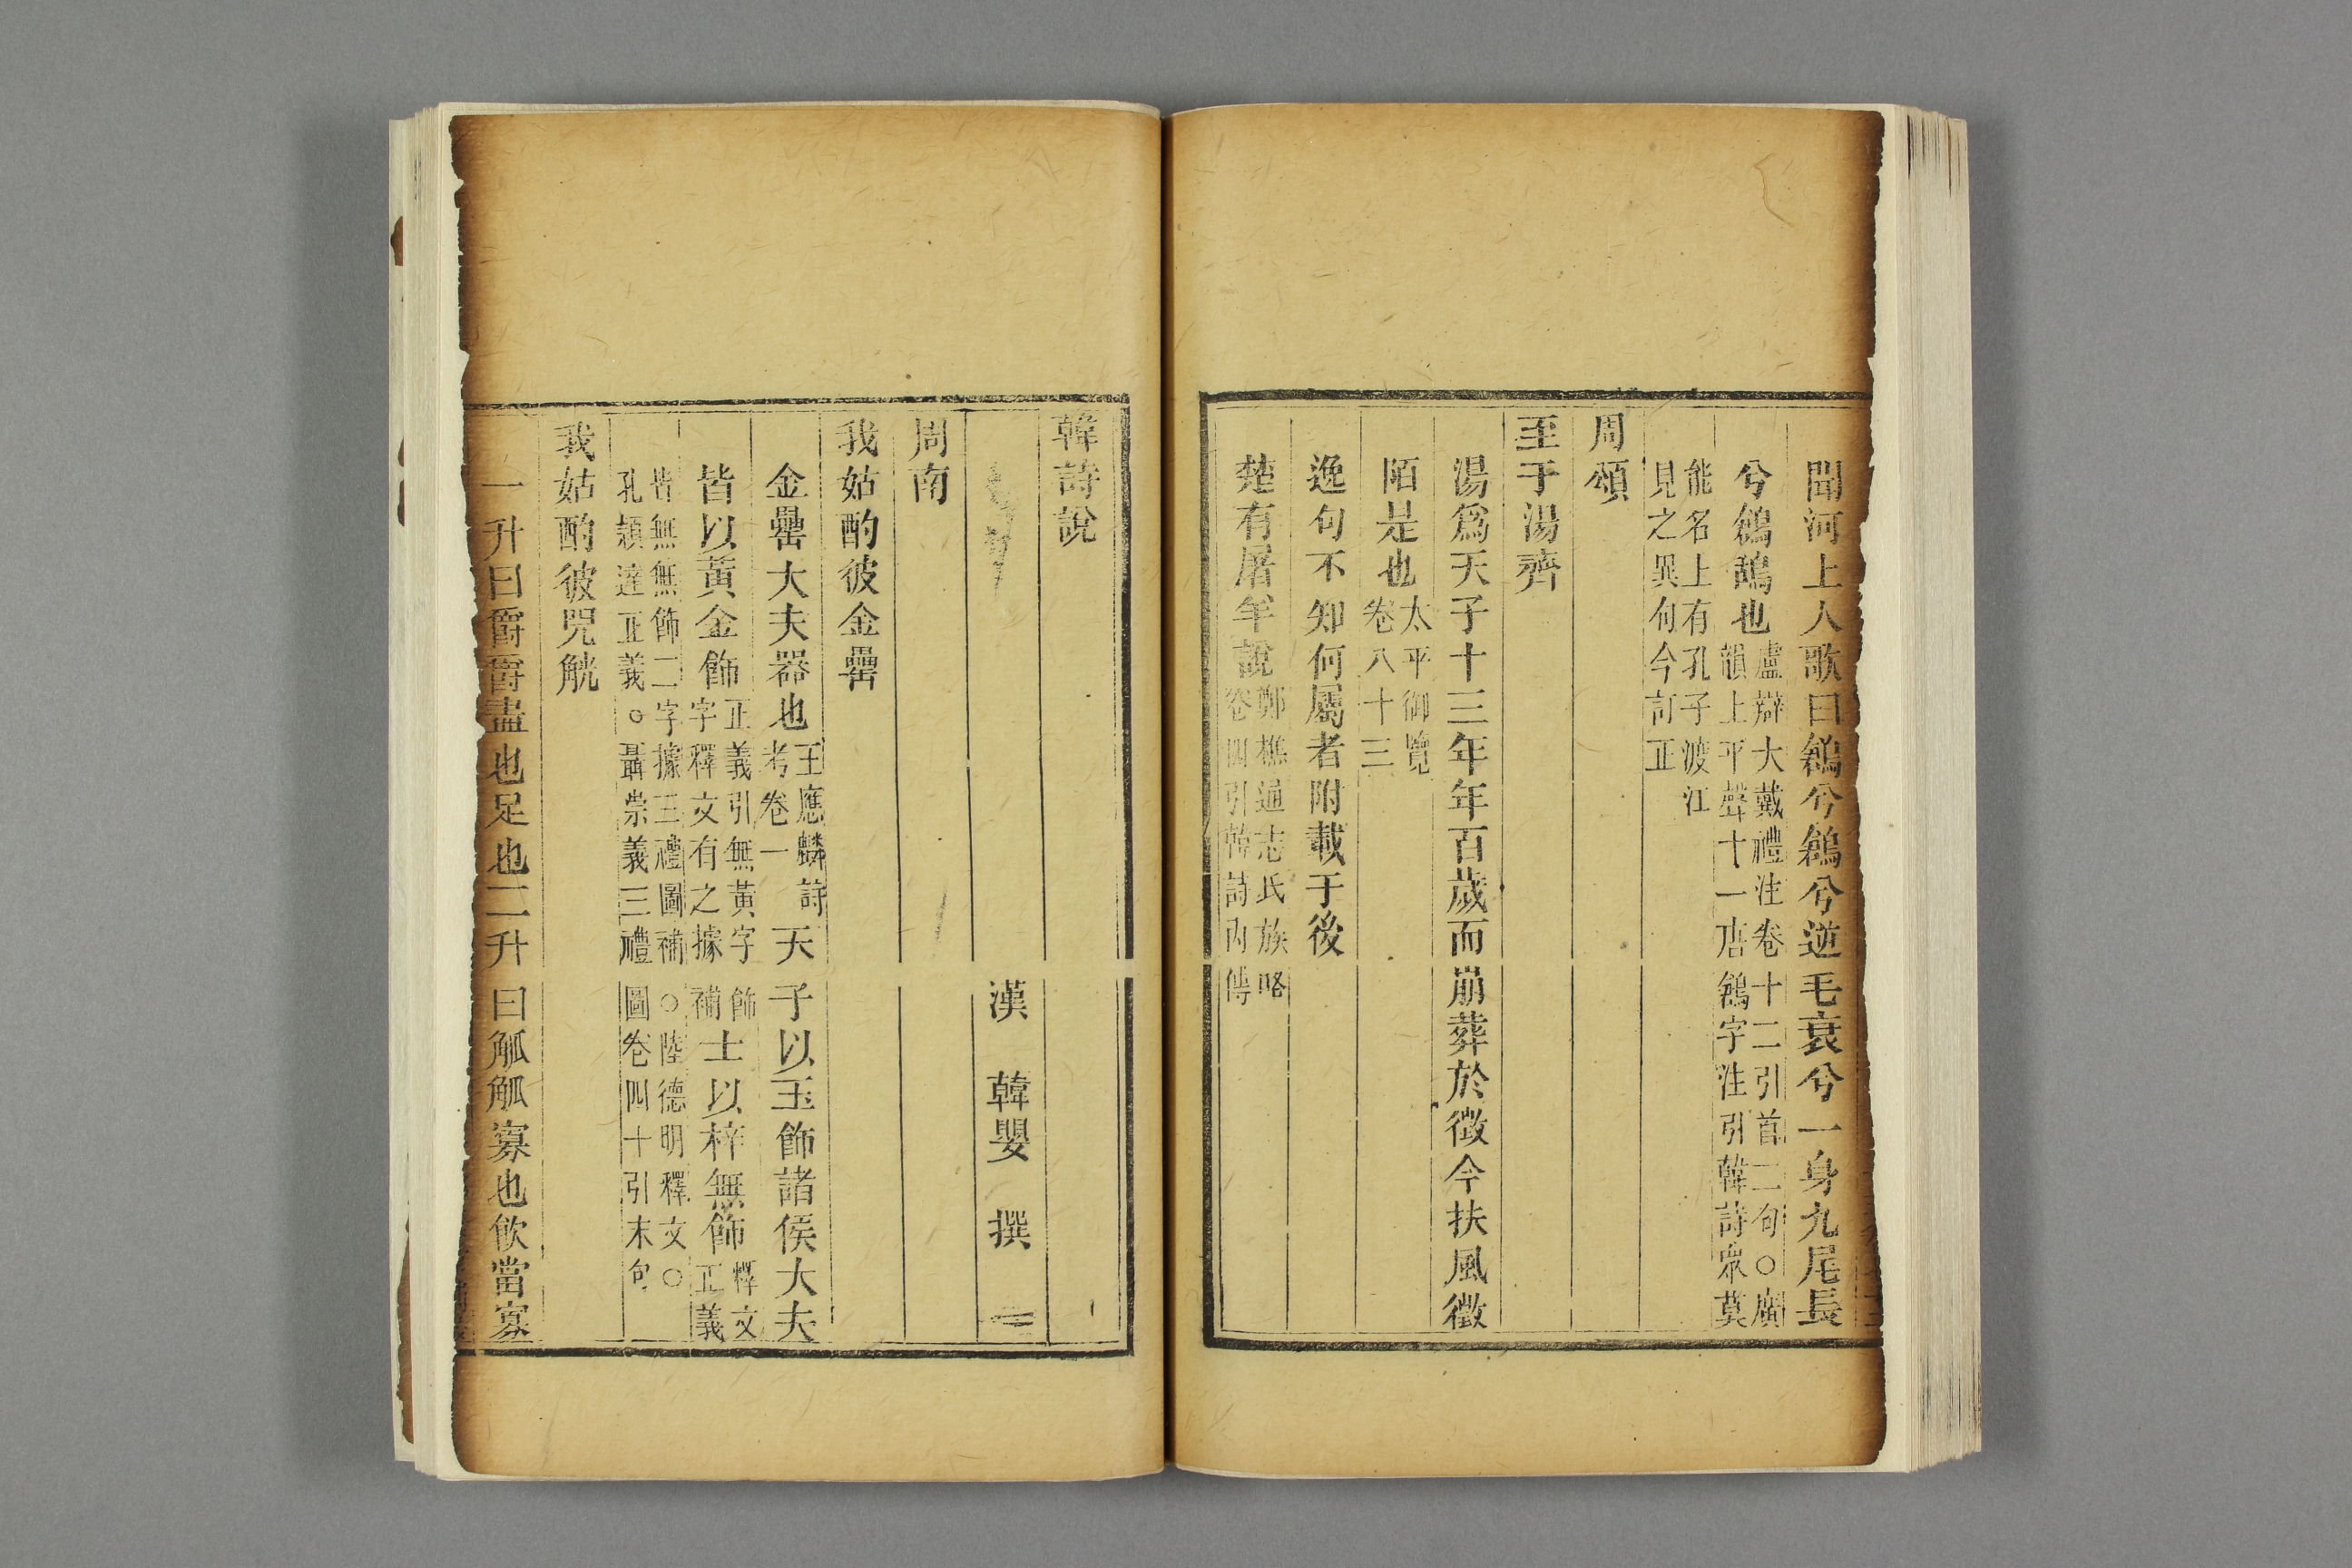 聞河上人歌曰鶬兮鶬兮逆毛衰兮一身九尾長
兮鶬鴰也盧辯大戴禮注卷十二引首二句○廣韻上平聲十一唐鶬字注引韓詩眾莫
能名上有孔子渡江見之異句今訂正
周頌
至于湯齊
湯爲天子十三年年百歲而崩葬於徵今扶風徵
陌是也太平御覽卷八十三
逸句不知何屬者附載于後
楚有屠羊說鄭樵通志氏族略卷四引韓詩內傳
韓詩說
漢 韓嬰 撰
周南
我姑酌彼金罍
金罍大夫器也王應麟詩考卷一天子以玉飾諸侯大夫
皆以黃金飾正義引無黃字飾字釋文有之據補士以梓無飾釋文正義
皆無無飾二字據三禮圖補○陸德明釋文○孔穎達正義○聶崇義三禮圖卷四十引末句
我姑酌彼兕觥
一升曰爵爵盡也足也二升曰觚觚寡也飲當寡